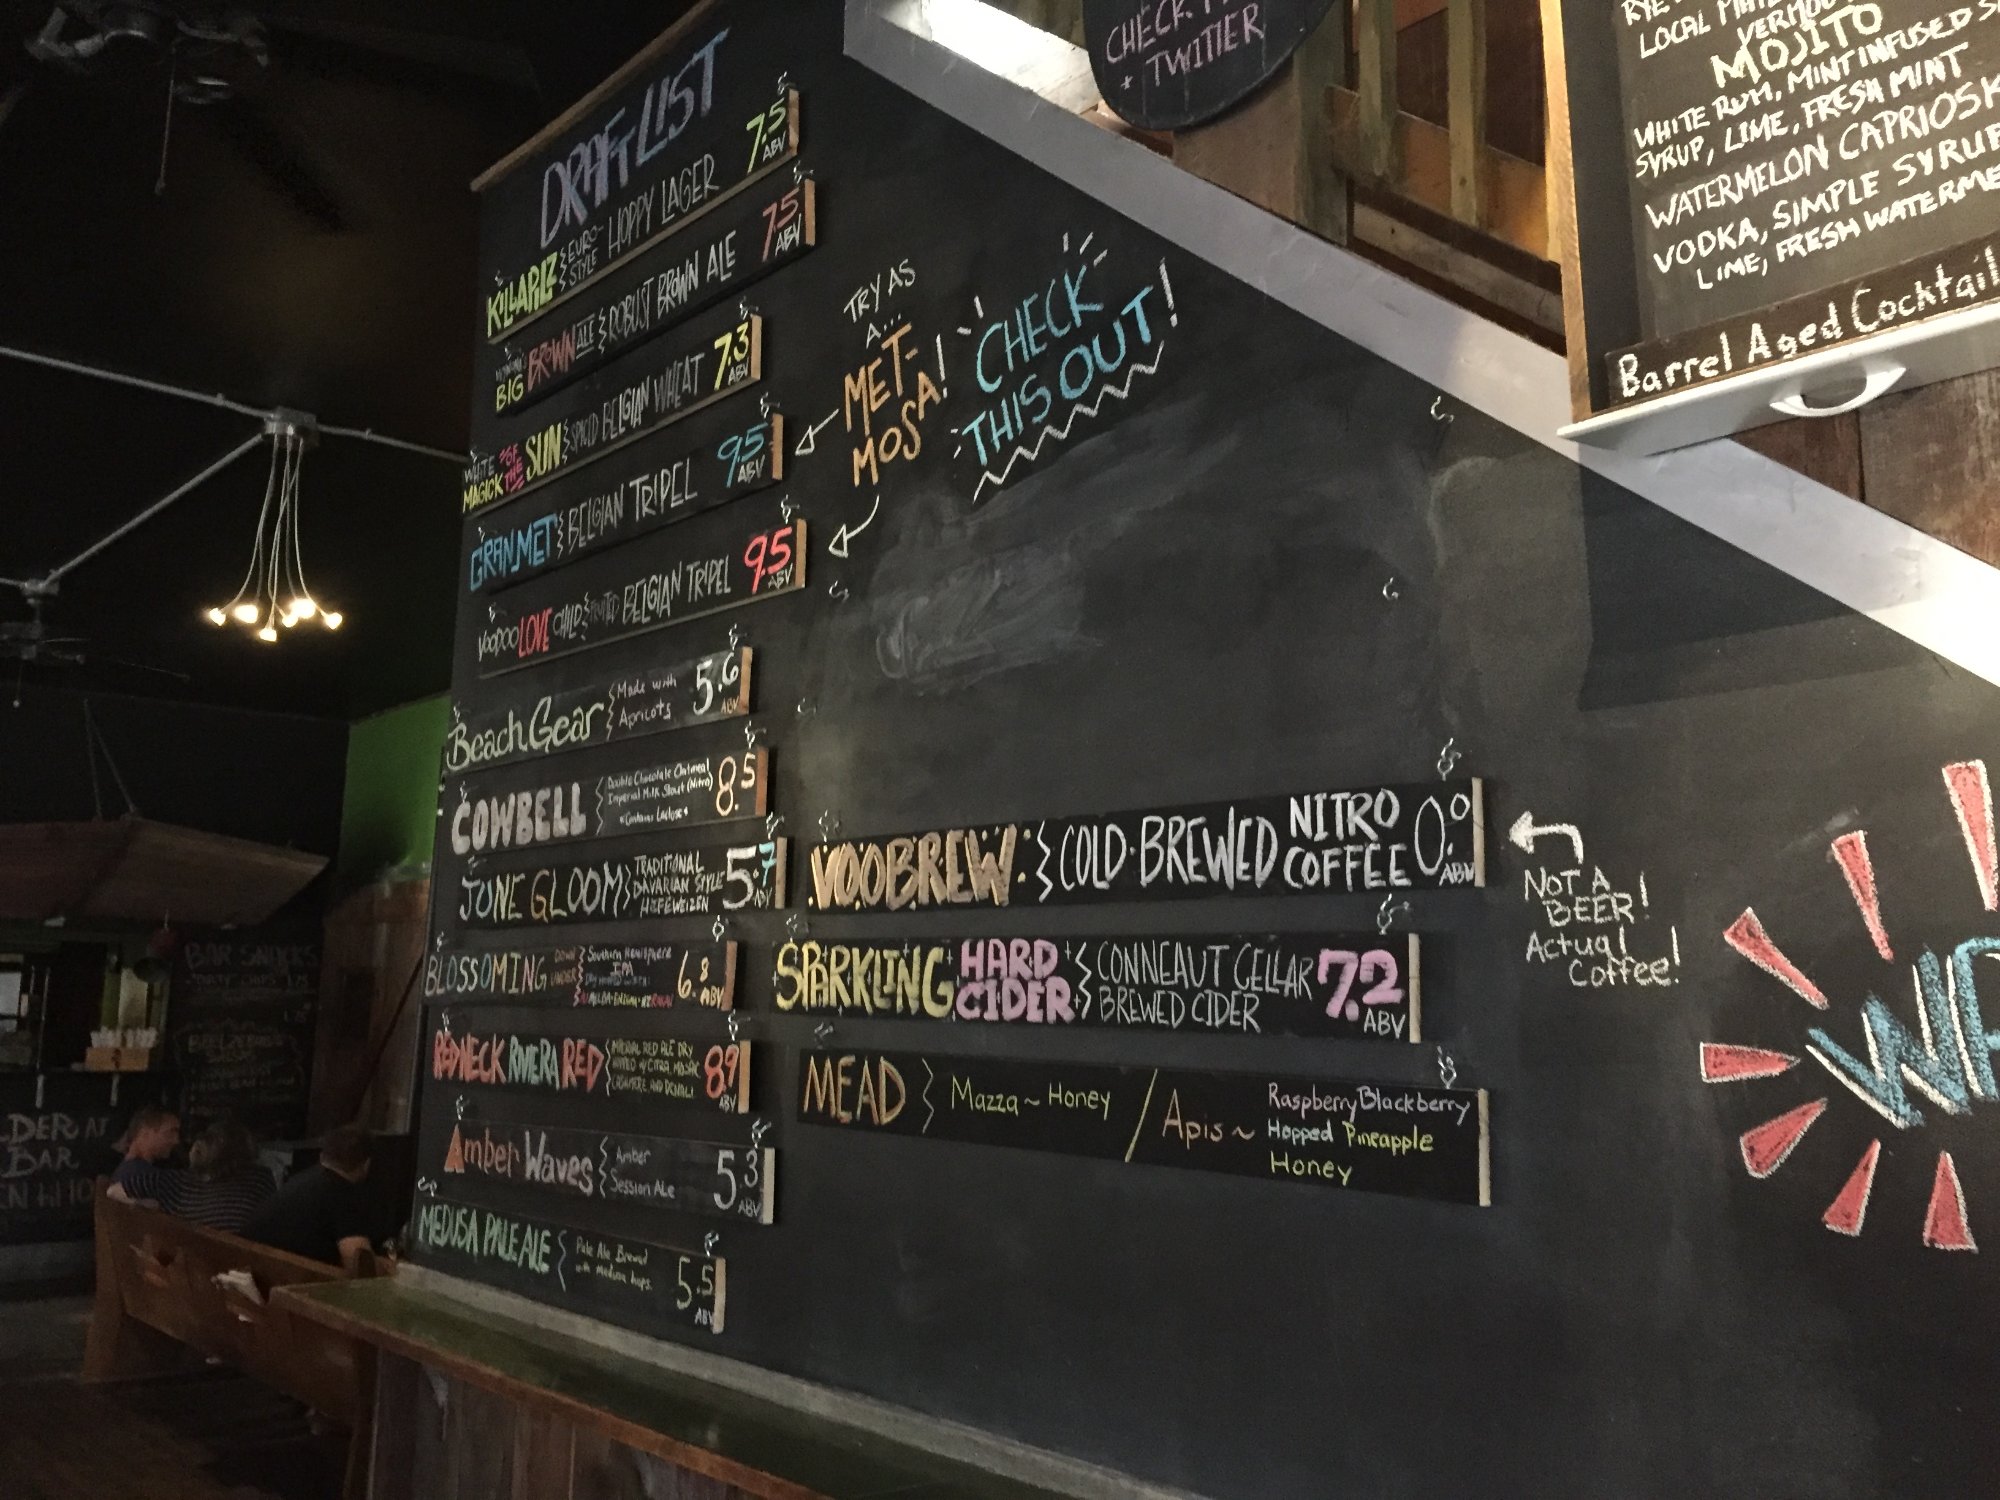 DRAFT LIST
KILLAPILZ EURO-STYLE HOPPY LAGER 7.5 ABV
BIG BROWN ALE ROBUST BROWN ALE 7.5 ABV
WHITE MAGICK OF THE SUN SPICED BELGIAN WHEAT 7.3 ABV
GRAN MET BELGIAN TRIPEL 9.5 ABV
VOODOO LOVE CHILD FRUITED BELGIAN TRIPEL 9.5 ABV
Beach Gear Made with Apricots 5.6 ABV
COWBELL Double Chocolate Oatmeal Imperial Milk Stout (Nitro) *Contains Lactose* 8.5
JUNE GLOOM TRADITIONAL BAVARIAN STYLE HEFEWEIZEN 5.7 ABV
BLOSSOMING DOWN UNDER Southern Hemisphere IPA 6.8 ABV
REDNECK RIVIERA RED IMPERIAL RED ALE DRY HOPPED W/ CITRA, MOSAIC 8.9 ABV
Amber Waves Amber Session Ale 5.3 ABV
MEDUSA PALE ALE Pale Ale Brewed with Medusa hops 5.5 ABV
TRY AS
A...
MET-
MOSA!
CHECK
THIS OUT!
VOOBREW COLD-BREWED NITRO COFFEE 0.0 ABV
NOT A
BEER!
Actual
Coffee!
SPARKLING HARD CIDER CONNEAUT CELLAR BREWED CIDER 7.2 ABV
MEAD Mazza ~ Honey / Apis ~ Raspberry Blackberry
Hopped Pineapple
Honey
CHECK
+ TWITTER
LOCAL
MOJITO
WHITE RUM, MINT INFUSED
SYRUP, LIME, FRESH MINT
WATERMELON
VODKA, SIMPLE SYRUP
LIME, FRESH
Barrel Aged Cocktail
BAR SNACKS
BAR